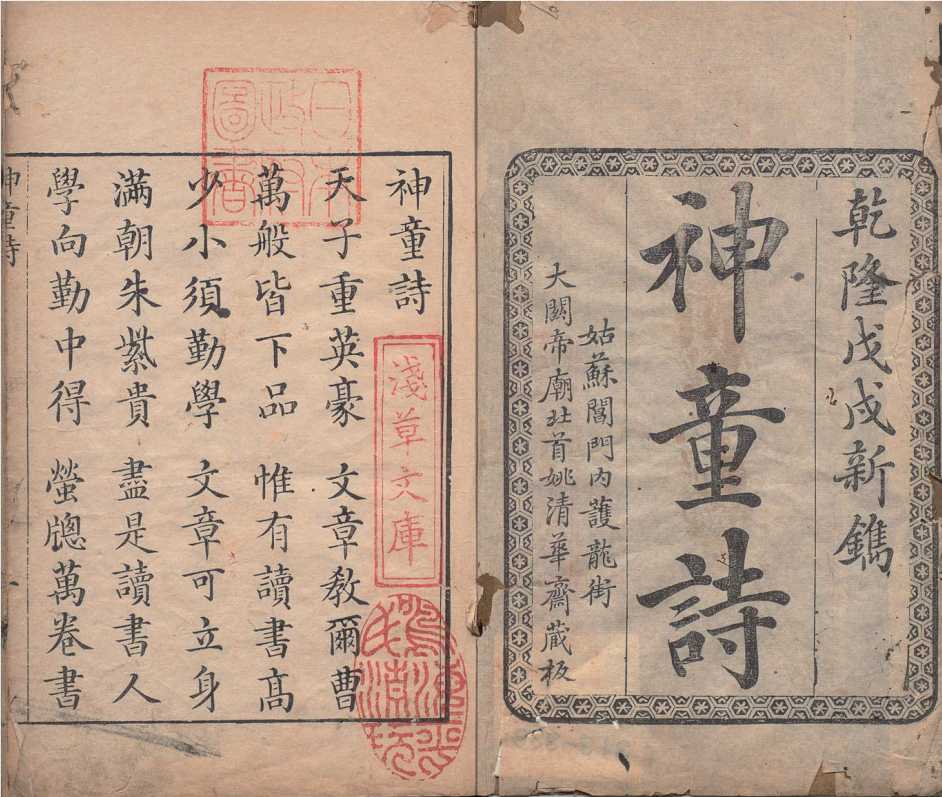 乾隆戊戌新鐫
神童詩
姑蘇閶門内護龍街
大關帝廟北首姚清華齋藏板
神童詩
天子重英豪 文章教爾曹
萬般皆下品 惟有讀書高
少小須勤學 文章可立身
滿朝朱紫貴 盡是讀書人
學向勤中得 螢牕萬卷書
神童詩
一
日本政府圖書
淺草文庫